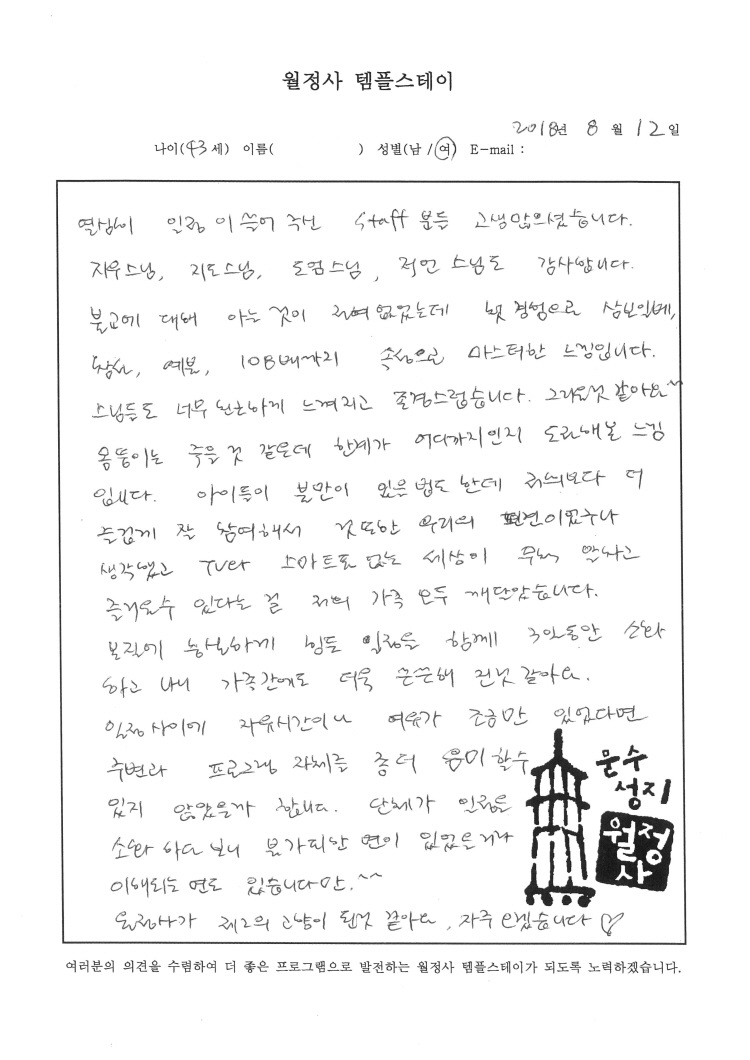 월정사 템플스테이
2018년 8월 12일
나이(43세) 이름( ) 성별(남/여) E-mail :
열심히 일정 이끌어 주신 staff 분들 고생많으셨습니다.
자우스님, 지도스님, 도엄스님, 적연 스님도 감사합니다.
불교에 대해 아는 것이 전혀 없었는데 첫 경험으로 삼보일배,
참선, 예불, 108배까지 속성으로 마스터한 느낌입니다.
스님들도 너무 친근하게 느껴지고 존경스럽습니다. 그리울것 같아요^^
몸뚱이는 죽을 것 같은데 한계가 어디까지인지 도전해본 느낌
입니다. 아이들이 불만이 있을 법도 한데 저희보다 더
즐겁게 잘 참여해서 것또한 우리의 편견이었구나
생각했고 TV나 스마트폰 없는 세상이 무척 편하고
즐거울수 있다는 걸 저희 가족 모두 깨달았습니다.
본질에 충실하게 힘든 일정을 함께 3일동안 소화
하고 나니 가족간에도 더욱 끈끈해 진것 같아요.
일정 사이에 자유시간이나 여유가 조금만 있었다면
주변과 프로그램 자체를 좀더 음미할수
있지 않았을까 합니다. 단체가 일정을
소화 하다 보니 불가피한 면이 있었을거라
이해되는 면도 있습니다만.^^
월정사가 제2의 고향이 된것 같아요, 자주 오겠습니다 ♡
문수
성지
월정
사
여러분의 의견을 수렴하여 더 좋은 프로그램으로 발전하는 월정사 템플스테이가 되도록 노력하겠습니다.